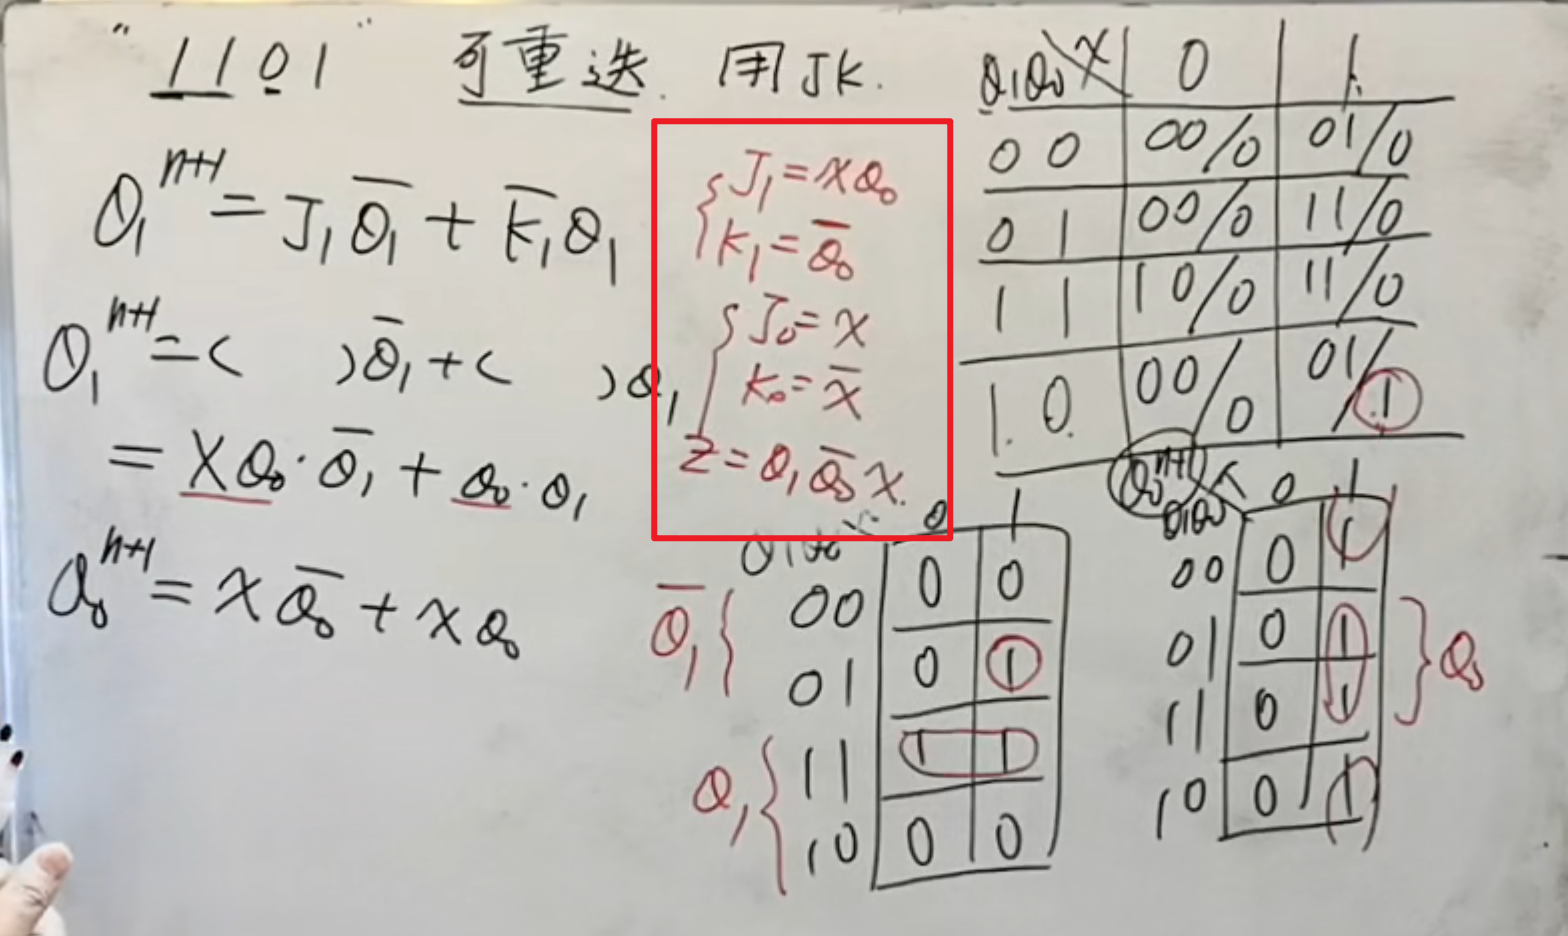 "1101" 可重迭. 用JK.
Q₁ⁿ⁺¹ = J₁Q̅₁ + K̅₁Q₁
Q₁ⁿ⁺¹ = ( )Q̅₁ + ( )Q₁
= XQ₀·Q̅₁ + Q₀·Q₁
Q₀ⁿ⁺¹ = XQ̅₀ + XQ₀
J₁ = XQ₀
K₁ = Q̅₀
J₀ = X
K₀ = X̅
Z = Q₁Q̅₀X.
Q₁Q₀ X 0 1
00 00/0 01/0
01 00/0 11/0
11 10/0 11/0
10 00/0 01/1
Q₁Q₀ 0 1
00 0 0
01 0 1
11 1 1
10 0 0
Q̅₁
Q₁
Q₀ⁿ⁺¹ X 0 1
Q₁Q₀
00 0 1
01 0 1
11 0 1
10 0 1
Q₀